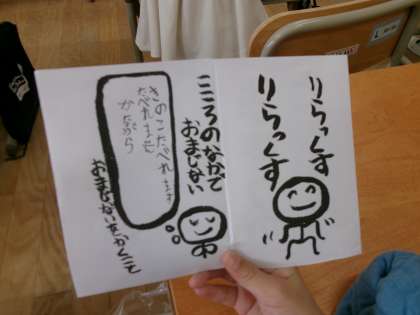 りらっくす
りらっくす
こころのなかで
おまじない
きのこたべれます
たべれませ
おまじないをかくこと